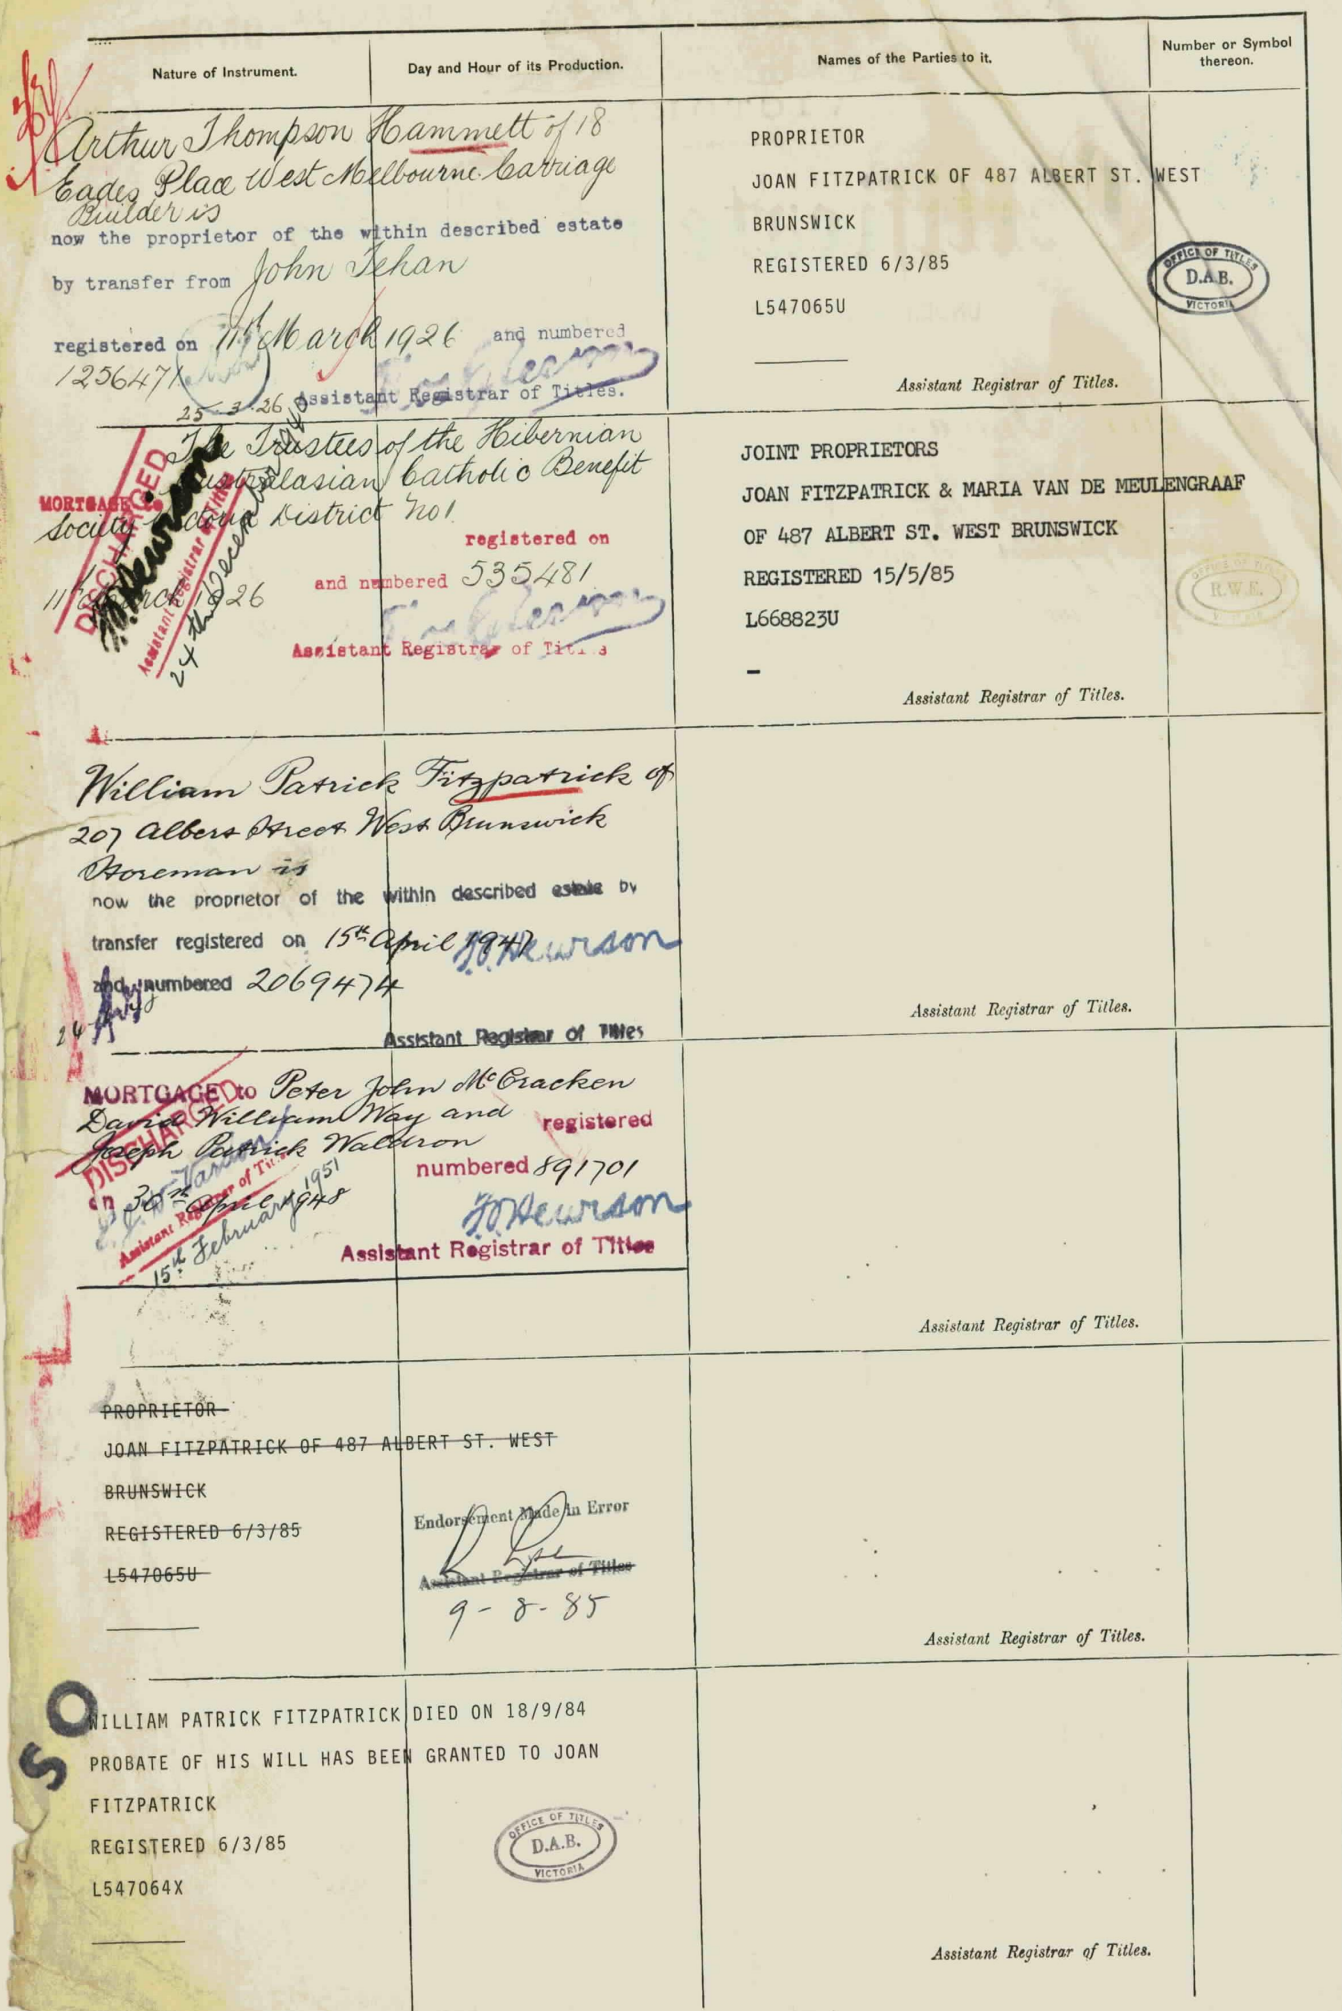 Nature of Instrument.
Day and Hour of its Production.
Names of the Parties to it.
Number or Symbol
thereon.
Arthur Thompson Hammett of 18
Eades Place West Melbourne Carriage
Builder is
now the proprietor of the within described estate
by transfer from John Tehan
registered on 11th March 1926 and numbered
1256471
25-3-26 Assistant Registrar of Titles.
The Trustees of the Hibernian
Australasian Catholic Benefit
MORTGAGE to
Society District No 1
registered on
11th March 1926 and numbered 535481
Assistant Registrar of Titles
DISCHARGED
Assistant Registrar of Titles
24th December 1940
William Patrick Fitzpatrick of
207 Albert Street West Brunswick
Foreman is
now the proprietor of the within described estate by
transfer registered on 15th April 1947
and numbered 2069474
Assistant Registrar of Titles
MORTGAGE to Peter John McCracken
David William Way and registered
Joseph Patrick Waldron
numbered 891701
on 30th April 1948
Assistant Registrar of Titles
DISCHARGED
Assistant Registrar of Titles
15th February 1951
PROPRIETOR
JOAN FITZPATRICK OF 487 ALBERT ST. WEST
BRUNSWICK
REGISTERED 6/3/85
L547065U
Endorsement Made in Error
Assistant Registrar of Titles
9-8-85
SO
WILLIAM PATRICK FITZPATRICK DIED ON 18/9/84
PROBATE OF HIS WILL HAS BEEN GRANTED TO JOAN
FITZPATRICK
REGISTERED 6/3/85
L547064X
OFFICE OF TITLES
D.A.B.
VICTORIA
PROPRIETOR
JOAN FITZPATRICK OF 487 ALBERT ST. WEST
BRUNSWICK
REGISTERED 6/3/85
L547065U
OFFICE OF TITLES
D.A.B.
VICTORIA
Assistant Registrar of Titles.
JOINT PROPRIETORS
JOAN FITZPATRICK & MARIA VAN DE MEULENGRAAF
OF 487 ALBERT ST. WEST BRUNSWICK
REGISTERED 15/5/85
L668823U
OFFICE OF TITLES
R.W.E.
Assistant Registrar of Titles.
Assistant Registrar of Titles.
Assistant Registrar of Titles.
Assistant Registrar of Titles.
Assistant Registrar of Titles.